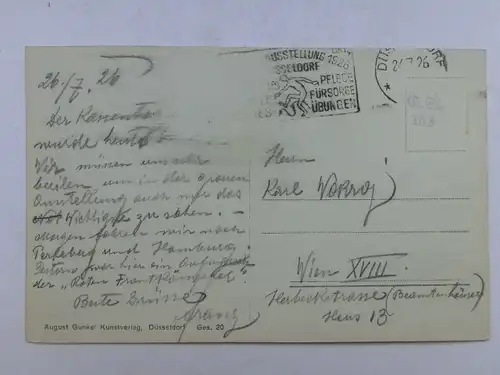 26./7. 26
Der Rassentag
wurde heute
Wir müssen uns sehr
beeilen, um in der grossen
Ausstellung auch nur das
Wichtigste zu sehen. –
Morgen fahren wir nach
Perleberg und Hamburg.
Gestern war hier ein Aufmarsch
der "Roten Frontkämpfer"
Beste Grüsse
Franz
August Gunkel Kunstverlag, Düsseldorf Ges. 20
AUSSTELLUNG 1926
DÜSSELDORF
PFLEGE
FÜRSORGE
ÜBUNGEN
26.7.26
Herrn
Karl
Wien XVIII.
Herbeckstrasse (Beamtenhäuser)
Haus 13